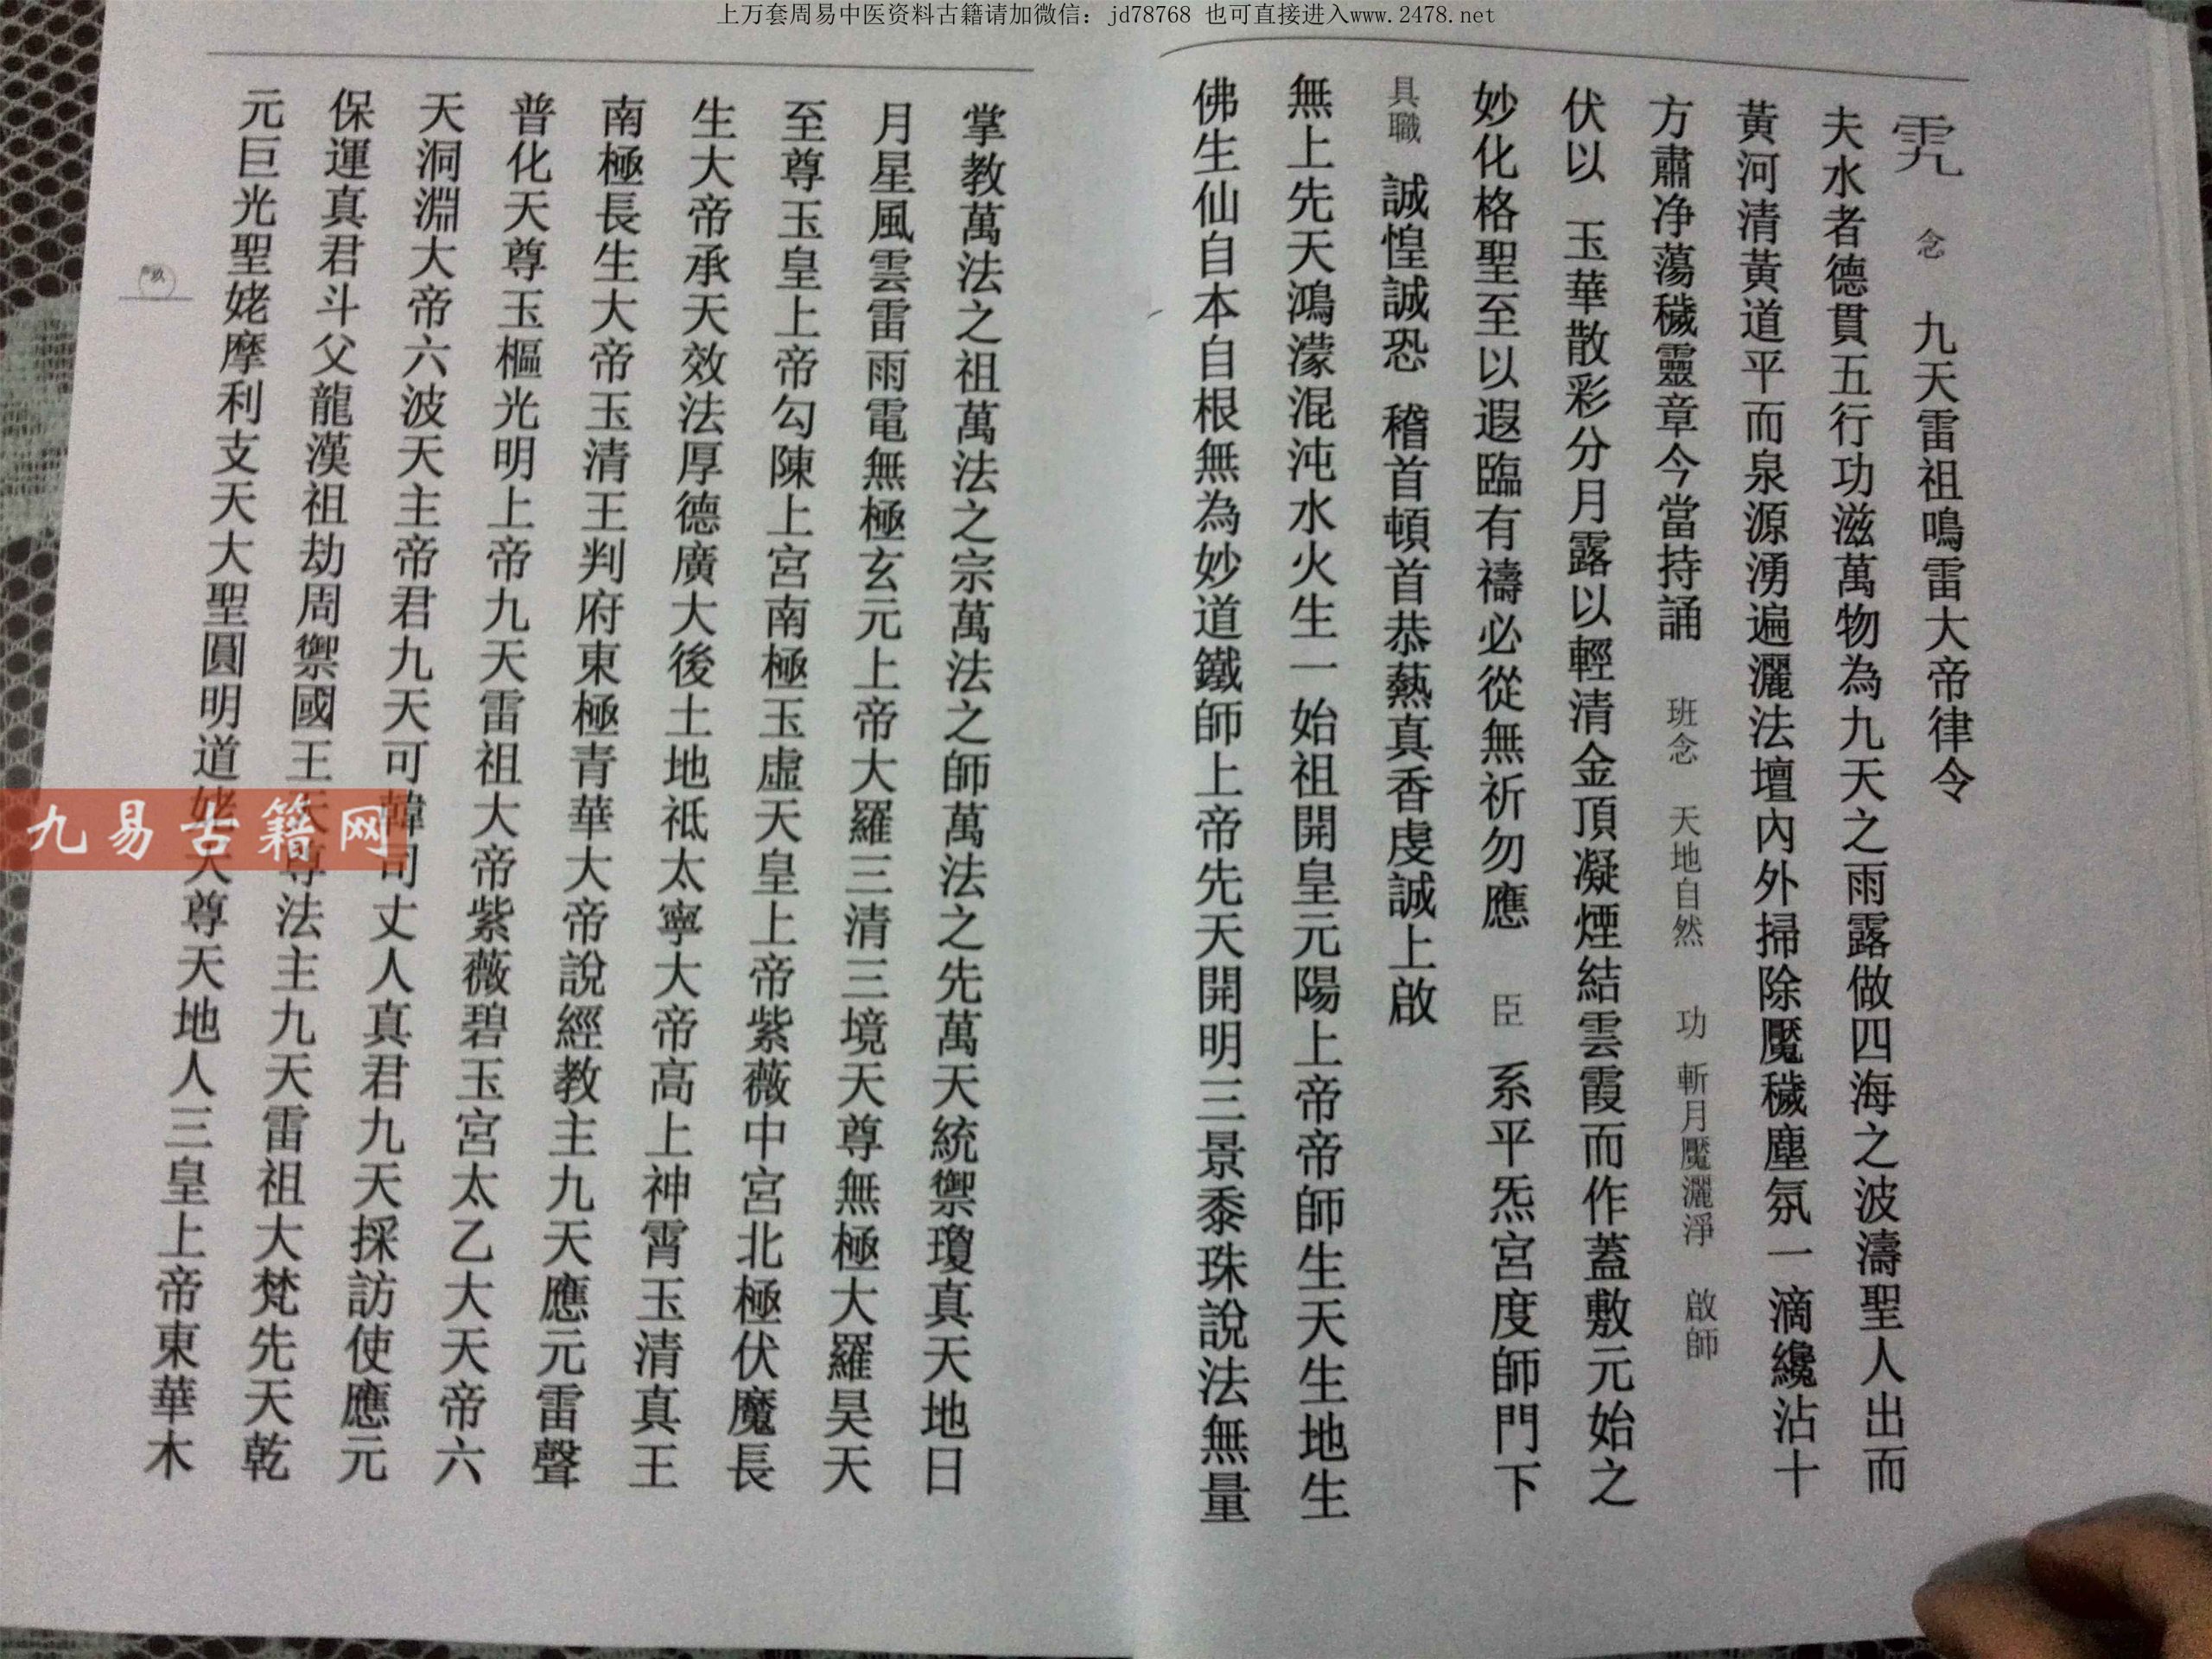 上万套周易中医资料古籍请加微信：jd78768 也可直接进入www.2478.net
念 九天雷祖鳴雷大帝律令
夫水者德貫五行功滋萬物為九天之雨露做四海之波濤聖人出而
黃河清黃道平而泉源湧遍灑法壇內外掃除魘穢塵氛一滴纔沾十
方肅净蕩穢靈章今當持誦 班念 天地自然 功 斬月魘灑淨 啟師
伏以 玉華散彩分月露以輕清金頂凝煙結雲霞而作蓋敷元始之
妙化格聖至以遐臨有禱必從無祈勿應 臣 系平炁宮度師門下
具職 誠惶誠恐 稽首頓首恭爇真香虔誠上啟
無上先天鴻濛混沌水火生一始祖開皇元陽上帝帝師生天生地生
佛生仙自本自根無為妙道鐵師上帝先天開明三景黍珠說法無量
掌教萬法之祖萬法之宗萬法之師萬法之先萬天統禦瓊真天地日
月星風雲雷雨電無極玄元上帝大羅三清三境天尊無極大羅昊天
至尊玉皇上帝勾陳上宮南極玉虛天皇上帝紫薇中宮北極伏魔長
生大帝承天效法厚德廣大後土地祇太寧大帝高上神霄玉清真王
南極長生大帝玉清王判府東極青華大帝說經教主九天應元雷聲
普化天尊玉樞光明上帝九天雷祖大帝紫薇碧玉宮太乙大天帝六
天洞淵大帝六波天主帝君九天可韓司丈人真君九天採訪使應元
保運真君斗父龍漢祖劫周禦國王天尊法主九天雷祖大梵先天乾
元巨光聖姥摩利支天大聖圓明道姥天尊天地人三皇上帝東華木
九易古籍网